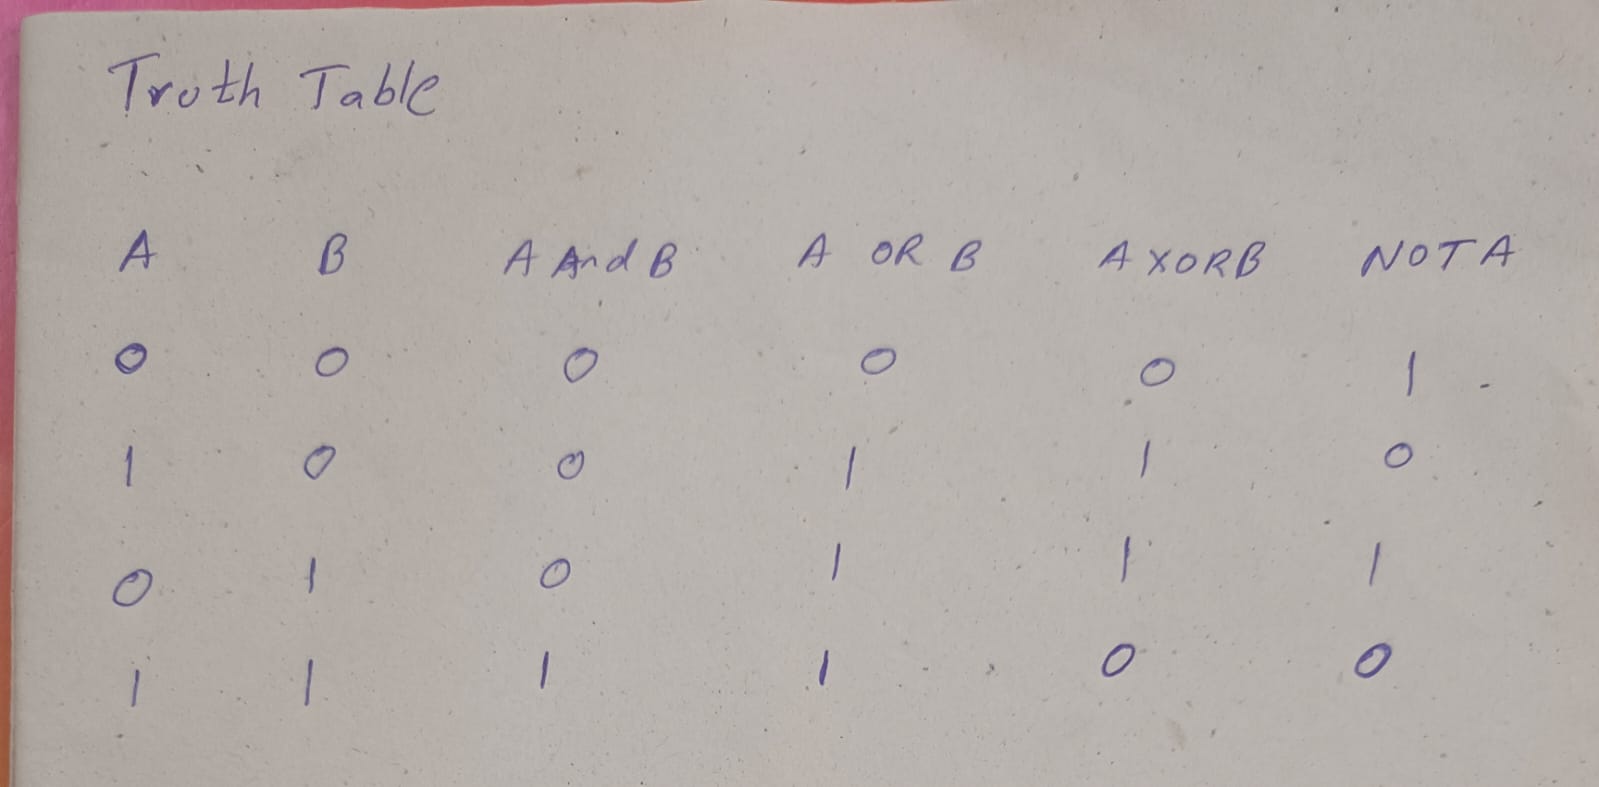 Truth Table
A B A And B A OR B A XOR B NOT A
0 0 0 0 0 1
1 0 0 1 1 0
0 1 0 1 1 1
1 1 1 1 0 0